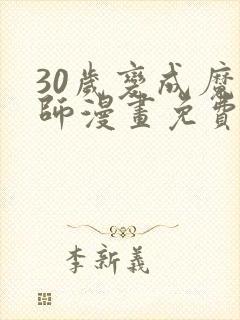 30歲變成魔
師漫畫免費
李新義